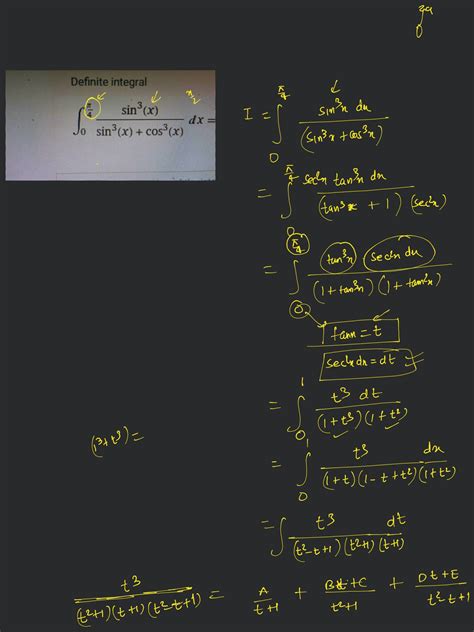 Definite integral
∫₀^(π/4) sin³(x) / (sin³(x) + cos³(x)) dx =
π/2
I = ∫₀^(π/4) sin³x dx / (sin³x + cos³x)
= ∫₀^(π/4) sec²x tan³x dx / (tan³x + 1) (sec²x)
= ∫₀^(π/4) tan³x sec²x dx / (1 + tan³x) (1 + tan²x)
tanx = t
sec²x dx = dt
= ∫₀^1 t³ dt / (1 + t³) (1 + t²)
(1³ + t³) =
= ∫₀^1 t³ dx / (1+t) (1 - t + t²) (1+t²)
= ∫ t³ dt / (t² - t + 1) (t² + 1) (t + 1)
t³ / (t²+1) (t+1) (t² - t + 1) = A / t+1 + Bt + C / t²+1 + Dt + E / t² - t + 1